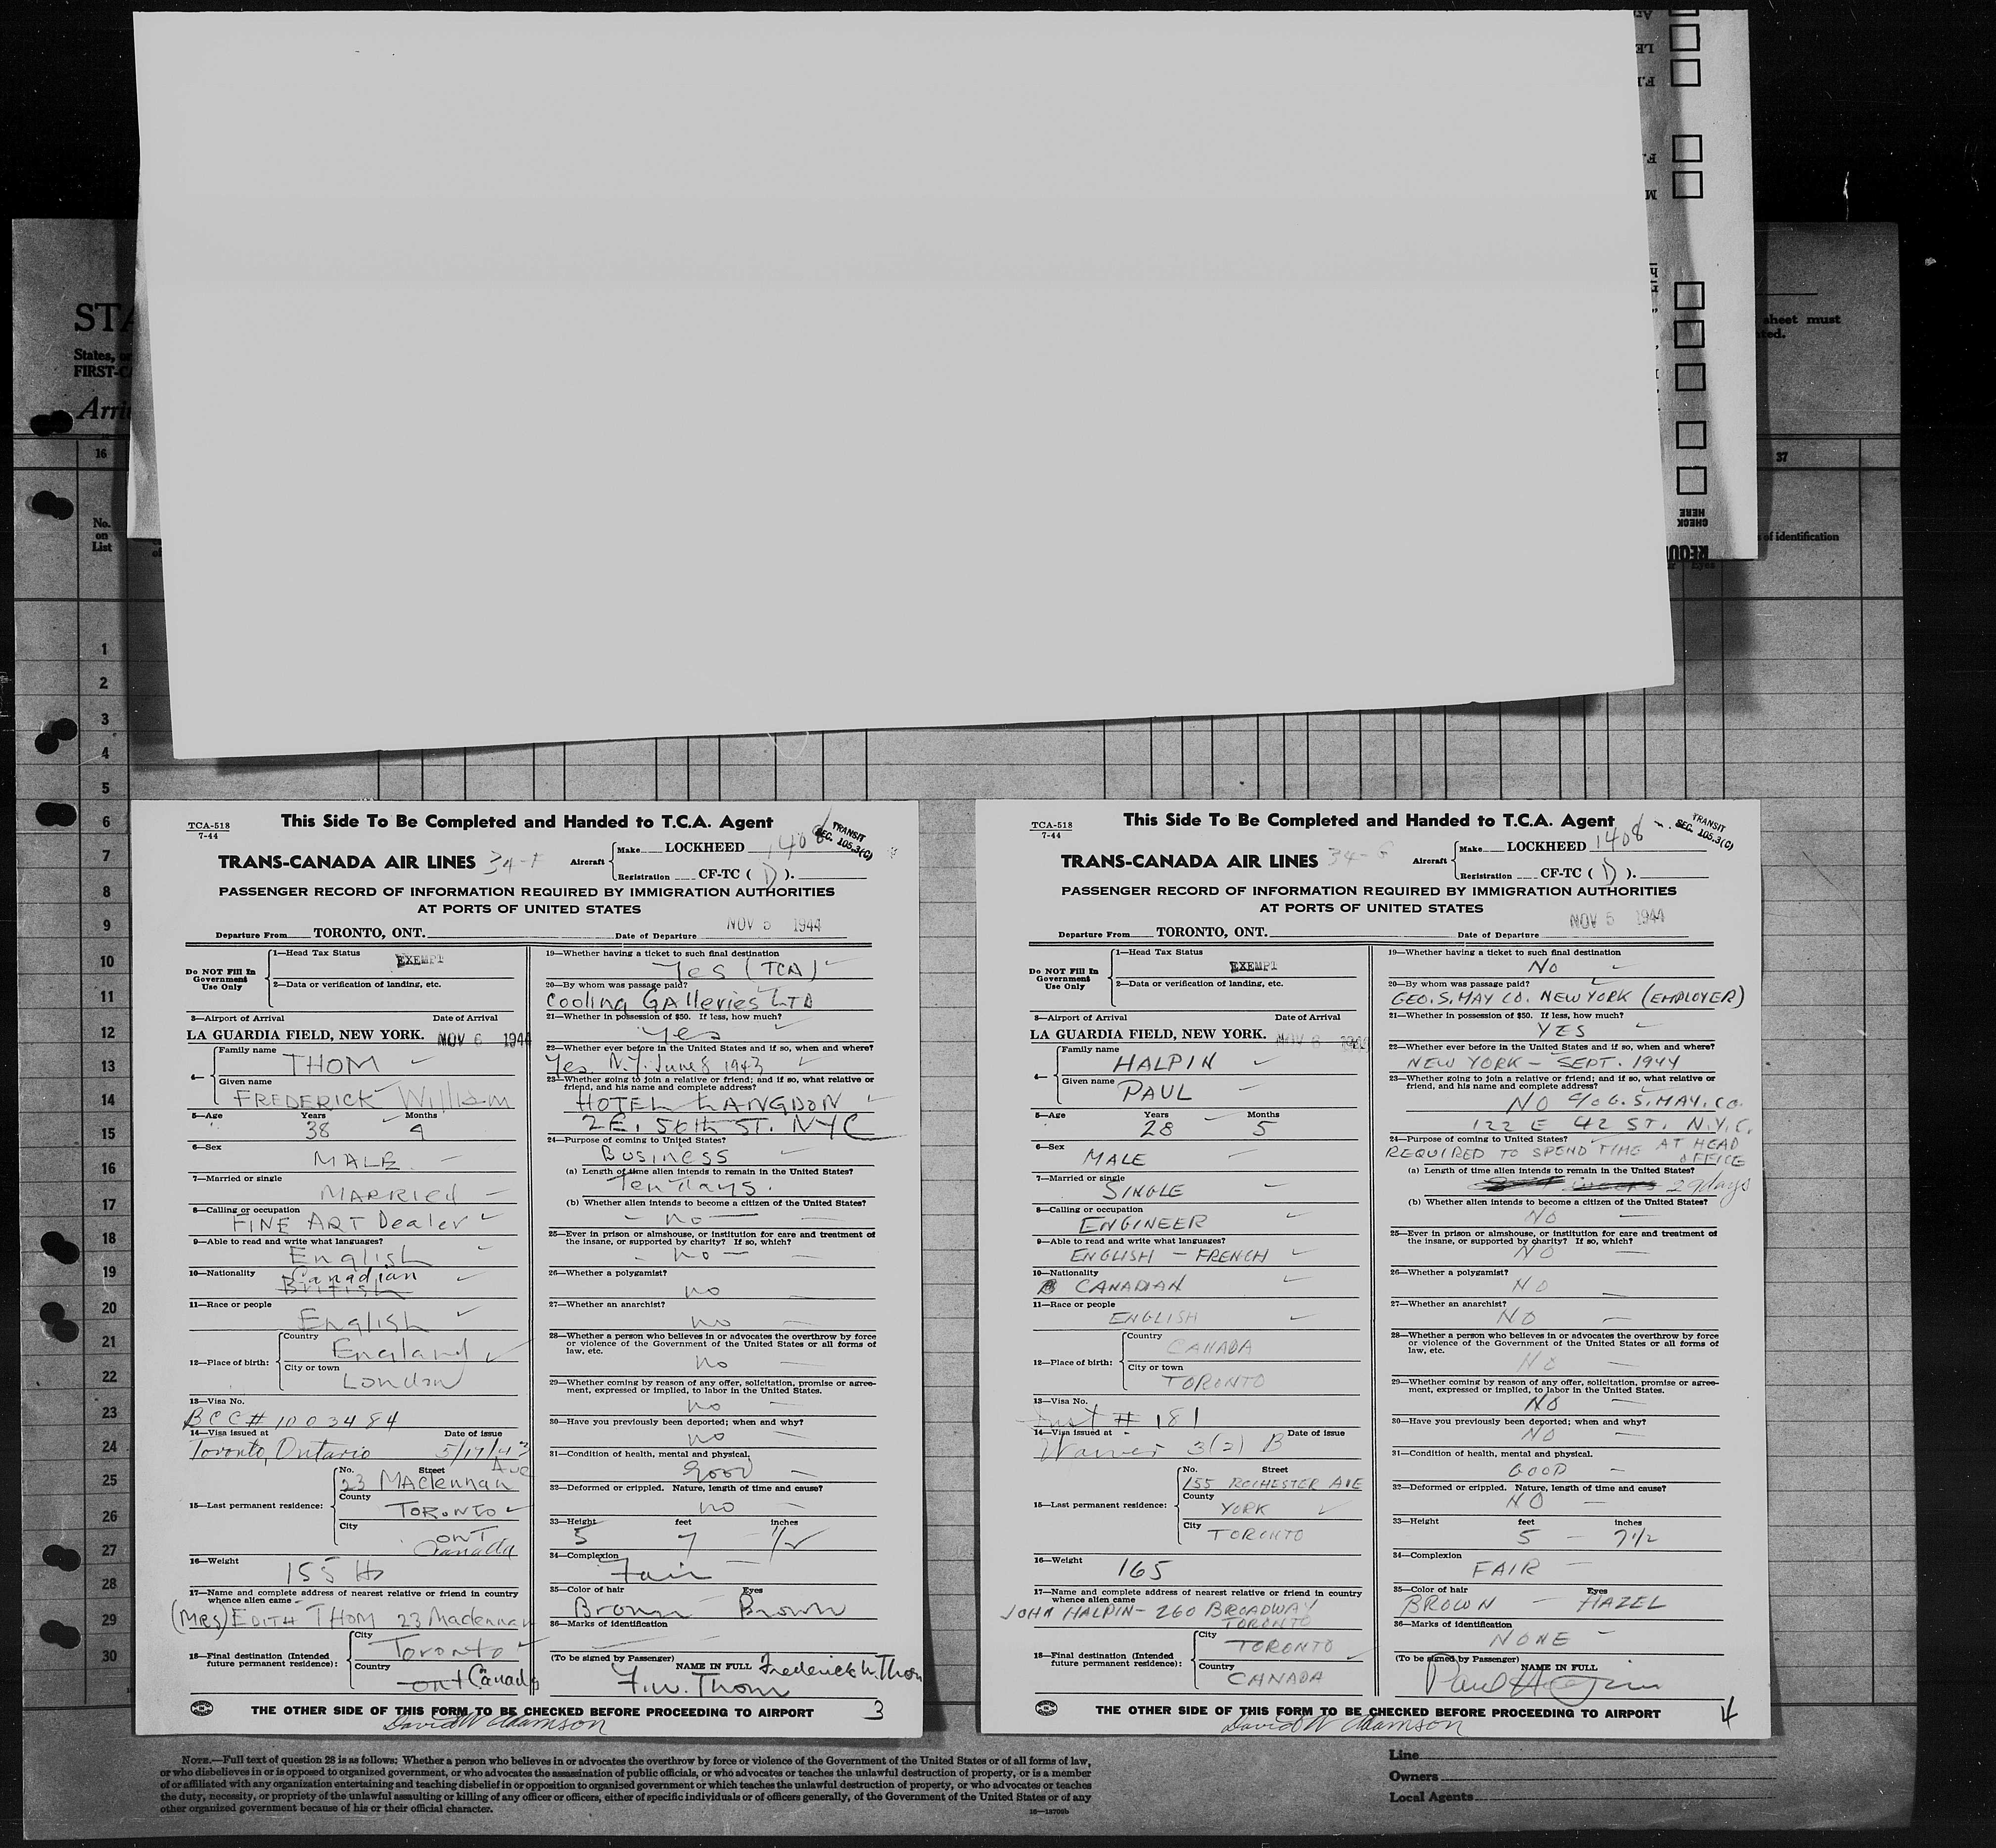 STA
States, or
FIRST-C
Arri
sheet must
ted.
16
37
No.
on
List
of identification
Eyes
CHECK
HERE
1
2
3
4
5
6
7
8
9
10
11
12
13
14
15
16
17
18
19
20
21
22
23
24
25
26
27
28
29
30
TCA-518
7-44
This Side To Be Completed and Handed to T.C.A. Agent
TRANSIT
SEC. 105.3(C)
TRANS-CANADA AIR LINES 34-F
Aircraft
Make LOCKHEED 1408
Registration CF-TC ( D ).
PASSENGER RECORD OF INFORMATION REQUIRED BY IMMIGRATION AUTHORITIES
AT PORTS OF UNITED STATES
NOV 5 1944
Departure From TORONTO, ONT. Date of Departure
Do NOT Fill In
Government
Use Only
1—Head Tax Status
EXEMPT
2—Data or verification of landing, etc.
3—Airport of Arrival Date of Arrival
LA GUARDIA FIELD, NEW YORK. NOV 6 1944
4—
Family name
THOM
Given name
FREDERICK William
5—Age Years Months
38 9
6—Sex
MALE
7—Married or single
MARRIED
8—Calling or occupation
FINE ART Dealer
9—Able to read and write what languages?
English
10—Nationality
Canadian
British
11—Race or people
English
12—Place of birth:
Country
England
City or town
London
13—Visa No.
BCC# 1003484
14—Visa issued at Date of issue
Toronto, Ontario 5/17/43
15—Last permanent residence:
No. Street
23 Maclennan Ave
County
TORONTO
City
ONT
Canada
16—Weight
155 lbs
17—Name and complete address of nearest relative or friend in country
whence alien came
(Mrs) EDITH THOM 23 Maclennan
18—Final destination (Intended
future permanent residence):
City
Toronto
Country
ont Canada
19—Whether having a ticket to such final destination
Yes (TCA)
20—By whom was passage paid?
Cooling GAlleries LTD
21—Whether in possession of $50. If less, how much?
Yes
22—Whether ever before in the United States and if so, when and where?
Yes. N.Y. June 8 1943
23—Whether going to join a relative or friend; and if so, what relative or
friend, and his name and complete address?
HOTEL LANGDON
2 E. 56th ST. NYC
24—Purpose of coming to United States?
BUSINESS
(a) Length of time alien intends to remain in the United States?
Ten days.
(b) Whether alien intends to become a citizen of the United States?
- no -
25—Ever in prison or almshouse, or institution for care and treatment of
the insane, or supported by charity? If so, which?
- no -
26—Whether a polygamist?
no
27—Whether an anarchist?
no
28—Whether a person who believes in or advocates the overthrow by force
or violence of the Government of the United States or all forms of
law, etc.
no
29—Whether coming by reason of any offer, solicitation, promise or agree-
ment, expressed or implied, to labor in the United States.
no
30—Have you previously been deported; when and why?
no
31—Condition of health, mental and physical.
good
32—Deformed or crippled. Nature, length of time and cause?
no
33—Height feet inches
5 7 1/2
34—Complexion
Fair
35—Color of hair Eyes
Brown Brown
36—Marks of identification
(To be signed by Passenger) NAME IN FULL Frederick W. Thom
F.W. Thom
THE OTHER SIDE OF THIS FORM TO BE CHECKED BEFORE PROCEEDING TO AIRPORT 3
David W Adamson
TCA-518
7-44
This Side To Be Completed and Handed to T.C.A. Agent
TRANSIT
SEC. 105.3(C)
TRANS-CANADA AIR LINES 34-G
Aircraft
Make LOCKHEED 1408
Registration CF-TC ( D ).
PASSENGER RECORD OF INFORMATION REQUIRED BY IMMIGRATION AUTHORITIES
AT PORTS OF UNITED STATES
NOV 5 1944
Departure From TORONTO, ONT. Date of Departure
Do NOT Fill In
Government
Use Only
1—Head Tax Status
EXEMPT
2—Data or verification of landing, etc.
3—Airport of Arrival Date of Arrival
LA GUARDIA FIELD, NEW YORK. NOV 6 1944
4—
Family name
HALPIN
Given name
PAUL
5—Age Years Months
28 5
6—Sex
MALE
7—Married or single
SINGLE
8—Calling or occupation
ENGINEER
9—Able to read and write what languages?
ENGLISH - FRENCH
10—Nationality
CANADIAN
11—Race or people
ENGLISH
12—Place of birth:
Country
CANADA
City or town
TORONTO
13—Visa No.
Inst # 181
14—Visa issued at Date of issue
Waiver 3(2) B
15—Last permanent residence:
No. Street
155 ROCHESTER AVE
County
YORK
City
TORONTO
16—Weight
165
17—Name and complete address of nearest relative or friend in country
whence alien came
JOHN HALPIN - 260 BROADWAY
TORONTO
18—Final destination (Intended
future permanent residence):
City
TORONTO
Country
CANADA
19—Whether having a ticket to such final destination
NO
20—By whom was passage paid?
GEO. S. MAY CO. NEW YORK (EMPLOYER)
21—Whether in possession of $50. If less, how much?
YES
22—Whether ever before in the United States and if so, when and where?
NEW YORK - SEPT. 1944
23—Whether going to join a relative or friend; and if so, what relative or
friend, and his name and complete address?
NO c/o G. S. MAY. CO.
122 E 42 ST. N.Y.C.
24—Purpose of coming to United States?
REQUIRED TO SPEND TIME AT HEAD
OFFICE
(a) Length of time alien intends to remain in the United States?
weeks 29 days
(b) Whether alien intends to become a citizen of the United States?
NO
25—Ever in prison or almshouse, or institution for care and treatment of
the insane, or supported by charity? If so, which?
NO
26—Whether a polygamist?
NO
27—Whether an anarchist?
NO
28—Whether a person who believes in or advocates the overthrow by force
or violence of the Government of the United States or all forms of
law, etc.
NO
29—Whether coming by reason of any offer, solicitation, promise or agree-
ment, expressed or implied, to labor in the United States.
NO
30—Have you previously been deported; when and why?
NO
31—Condition of health, mental and physical.
GOOD
32—Deformed or crippled. Nature, length of time and cause?
NO
33—Height feet inches
5 - 7 1/2
34—Complexion
FAIR
35—Color of hair Eyes
BROWN - HAZEL
36—Marks of identification
NONE
(To be signed by Passenger) NAME IN FULL
Paul Halpin
THE OTHER SIDE OF THIS FORM TO BE CHECKED BEFORE PROCEEDING TO AIRPORT 4
David W Adamson
NOTE.—Full text of question 28 is as follows: Whether a person who believes in or advocates the overthrow by force or violence of the Government of the United States or of all forms of law,
or who disbelieves in or is opposed to organized government, or who advocates the assassination of public officials, or who advocates or teaches the unlawful destruction of property, or is a member
of or affiliated with any organization entertaining and teaching disbelief in or opposition to organised government or which teaches the unlawful destruction of property, or who advocates or teaches
the duty, necessity, or propriety of the unlawful assaulting or killing of any officer or officers, either of specific individuals or of officers generally, of the Government of the United States or of any
other organized government because of his or their official character.
Line
Owners
Local Agents